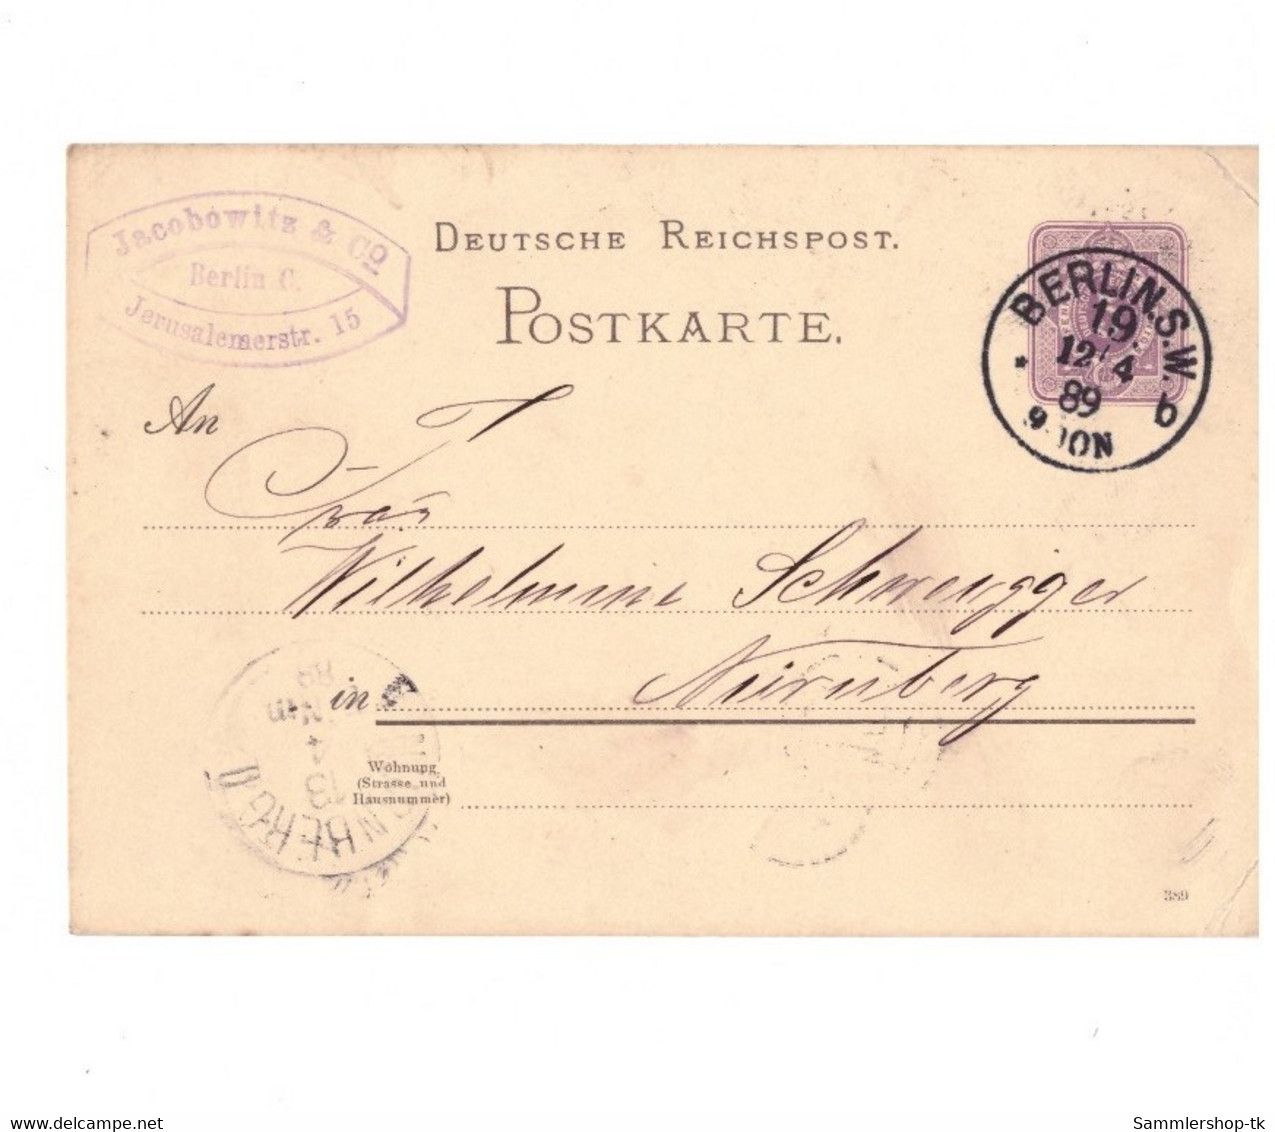 Jacobowitz & Co
Berlin C.
Jerusalemerstr. 15
DEUTSCHE REICHSPOST.
POSTKARTE.
BERLIN.S.W.
19.
12/4
89
9-10N
b
An
Frau
Wilhelmine Schweigger
in Nürnberg
89
13
4
NBERG II
Wohnung
(Strasse und
Hausnummer)
389
delcampe.net
Sammlershop-tk